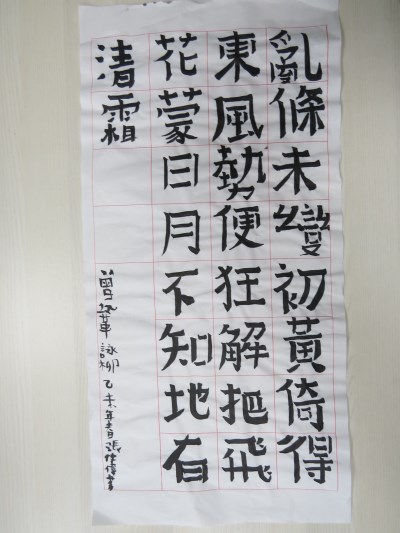 亂條未變初黃倚得
東風勢便狂解把飛
花蒙日月不知地有
清霜
曾鞏 詠柳 乙未年 張 書